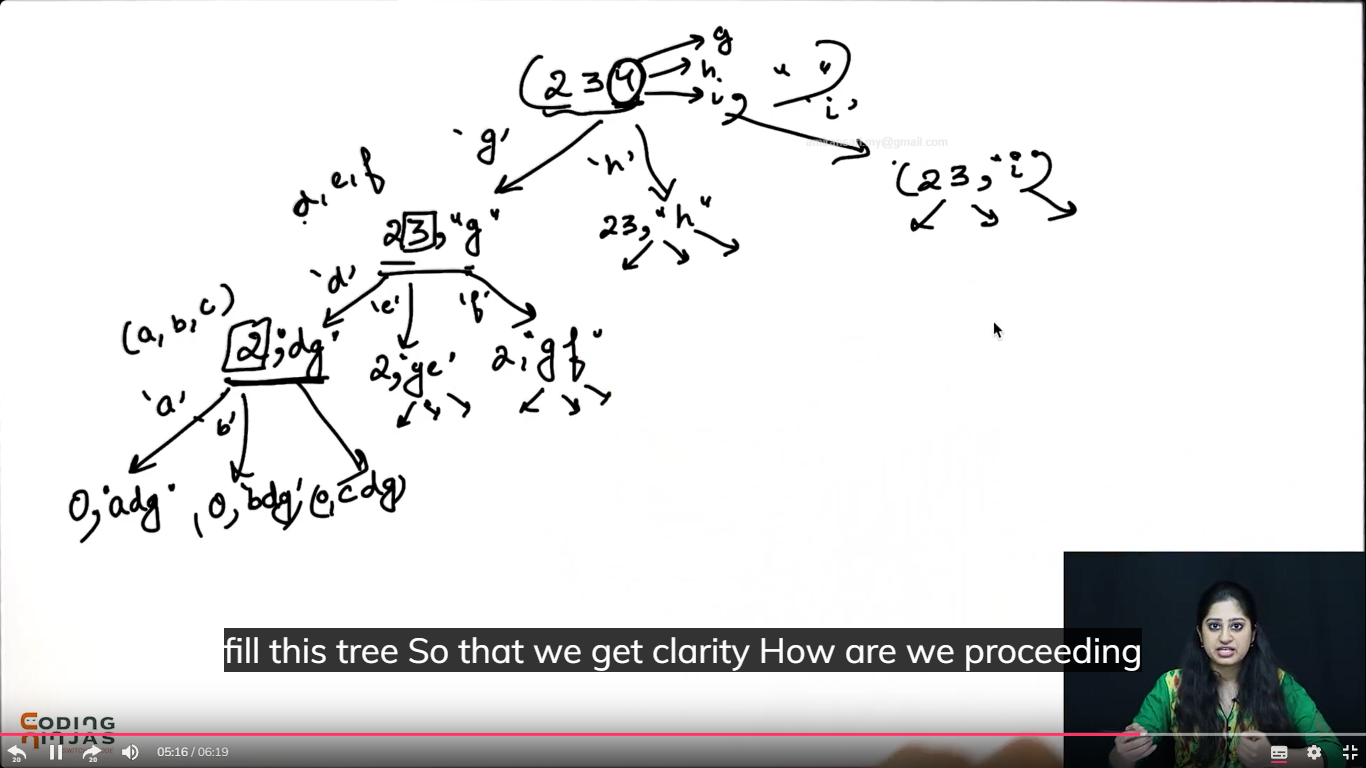 g
(2 3 4 h " "
i) 'i'
'g'
'h'
d, e, f
(23, "i)
23, "g"
23, "h"
'd' 'e' 'f'
(a, b, c)
2, "dg"
2, "ge'
2, "gf"
'a'
b'
0, "adg" , 0, 'bdg', (0, cdg)
fill this tree So that we get clarity How are we proceeding
CODING
NINJAS
20
20
05:16 / 06:19